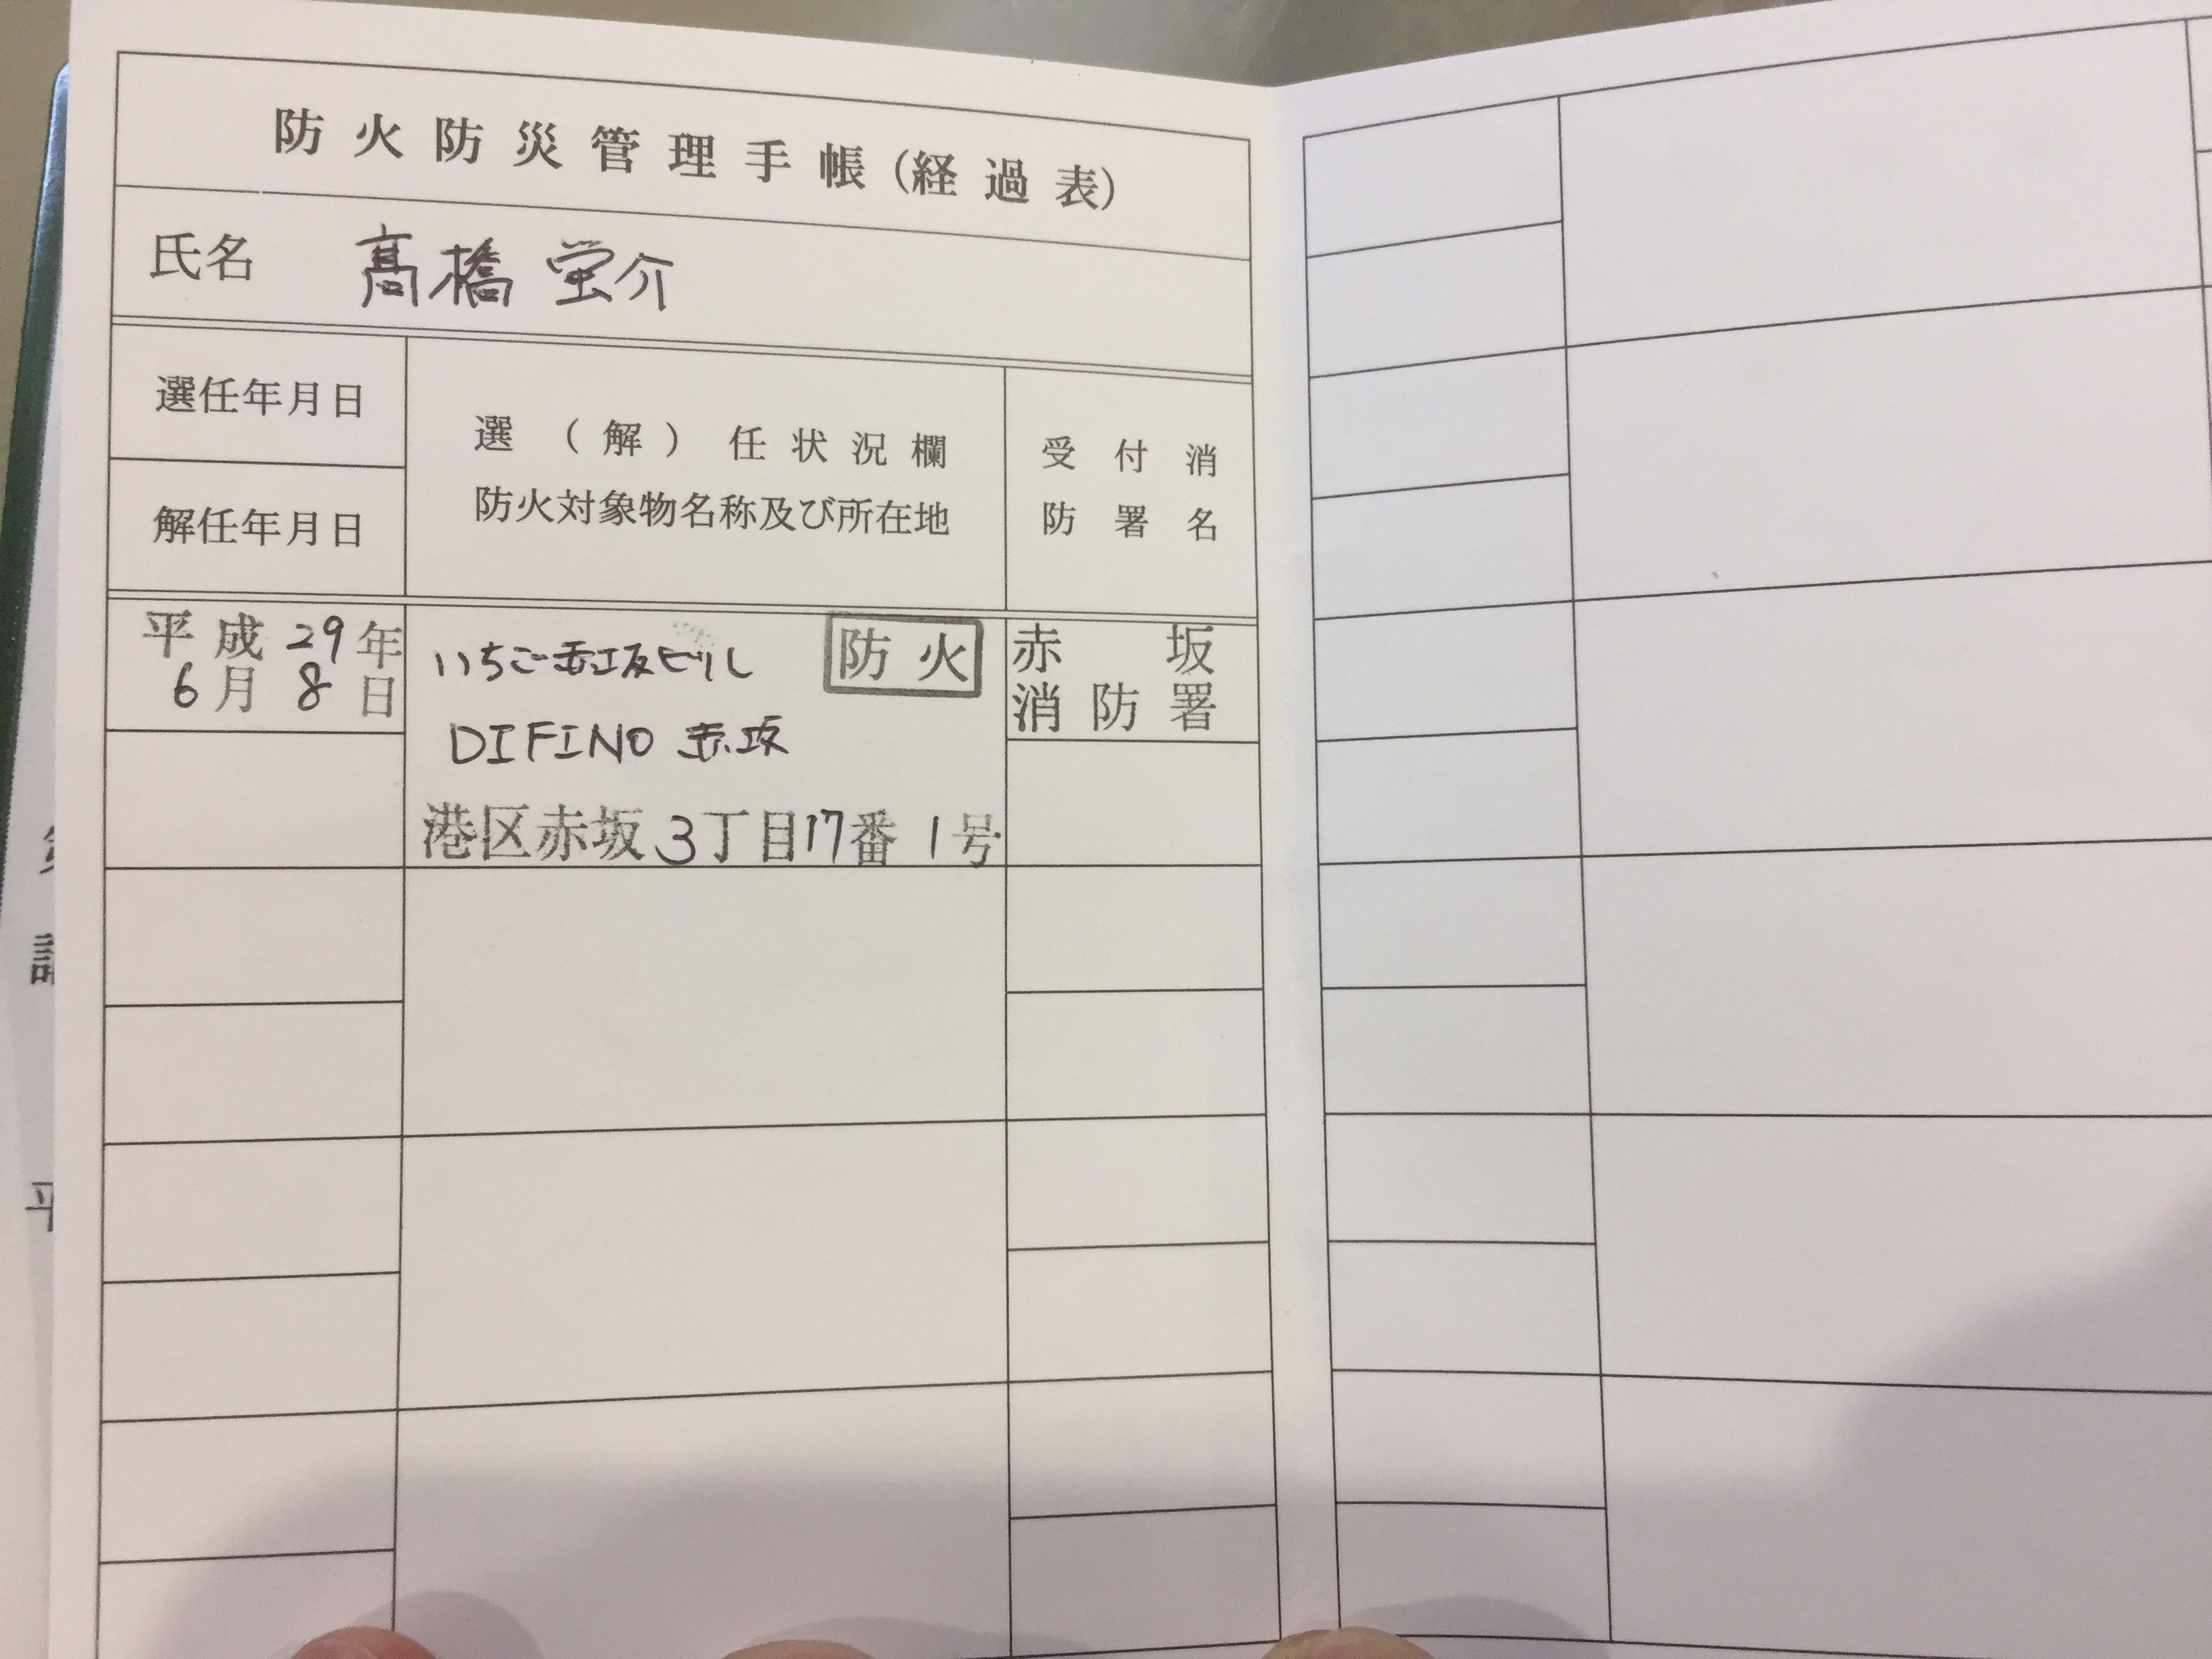 防火防災管理手帳(経過表)
氏名 髙橋 蛍介
選任年月日
解任年月日
選(解)任状況欄
防火対象物名称及び所在地
受付消
防署名
平成29年
6月8日
いちご赤坂ビル
防火
DIFINO 赤坂
港区赤坂3丁目17番1号
赤坂
消防署
平